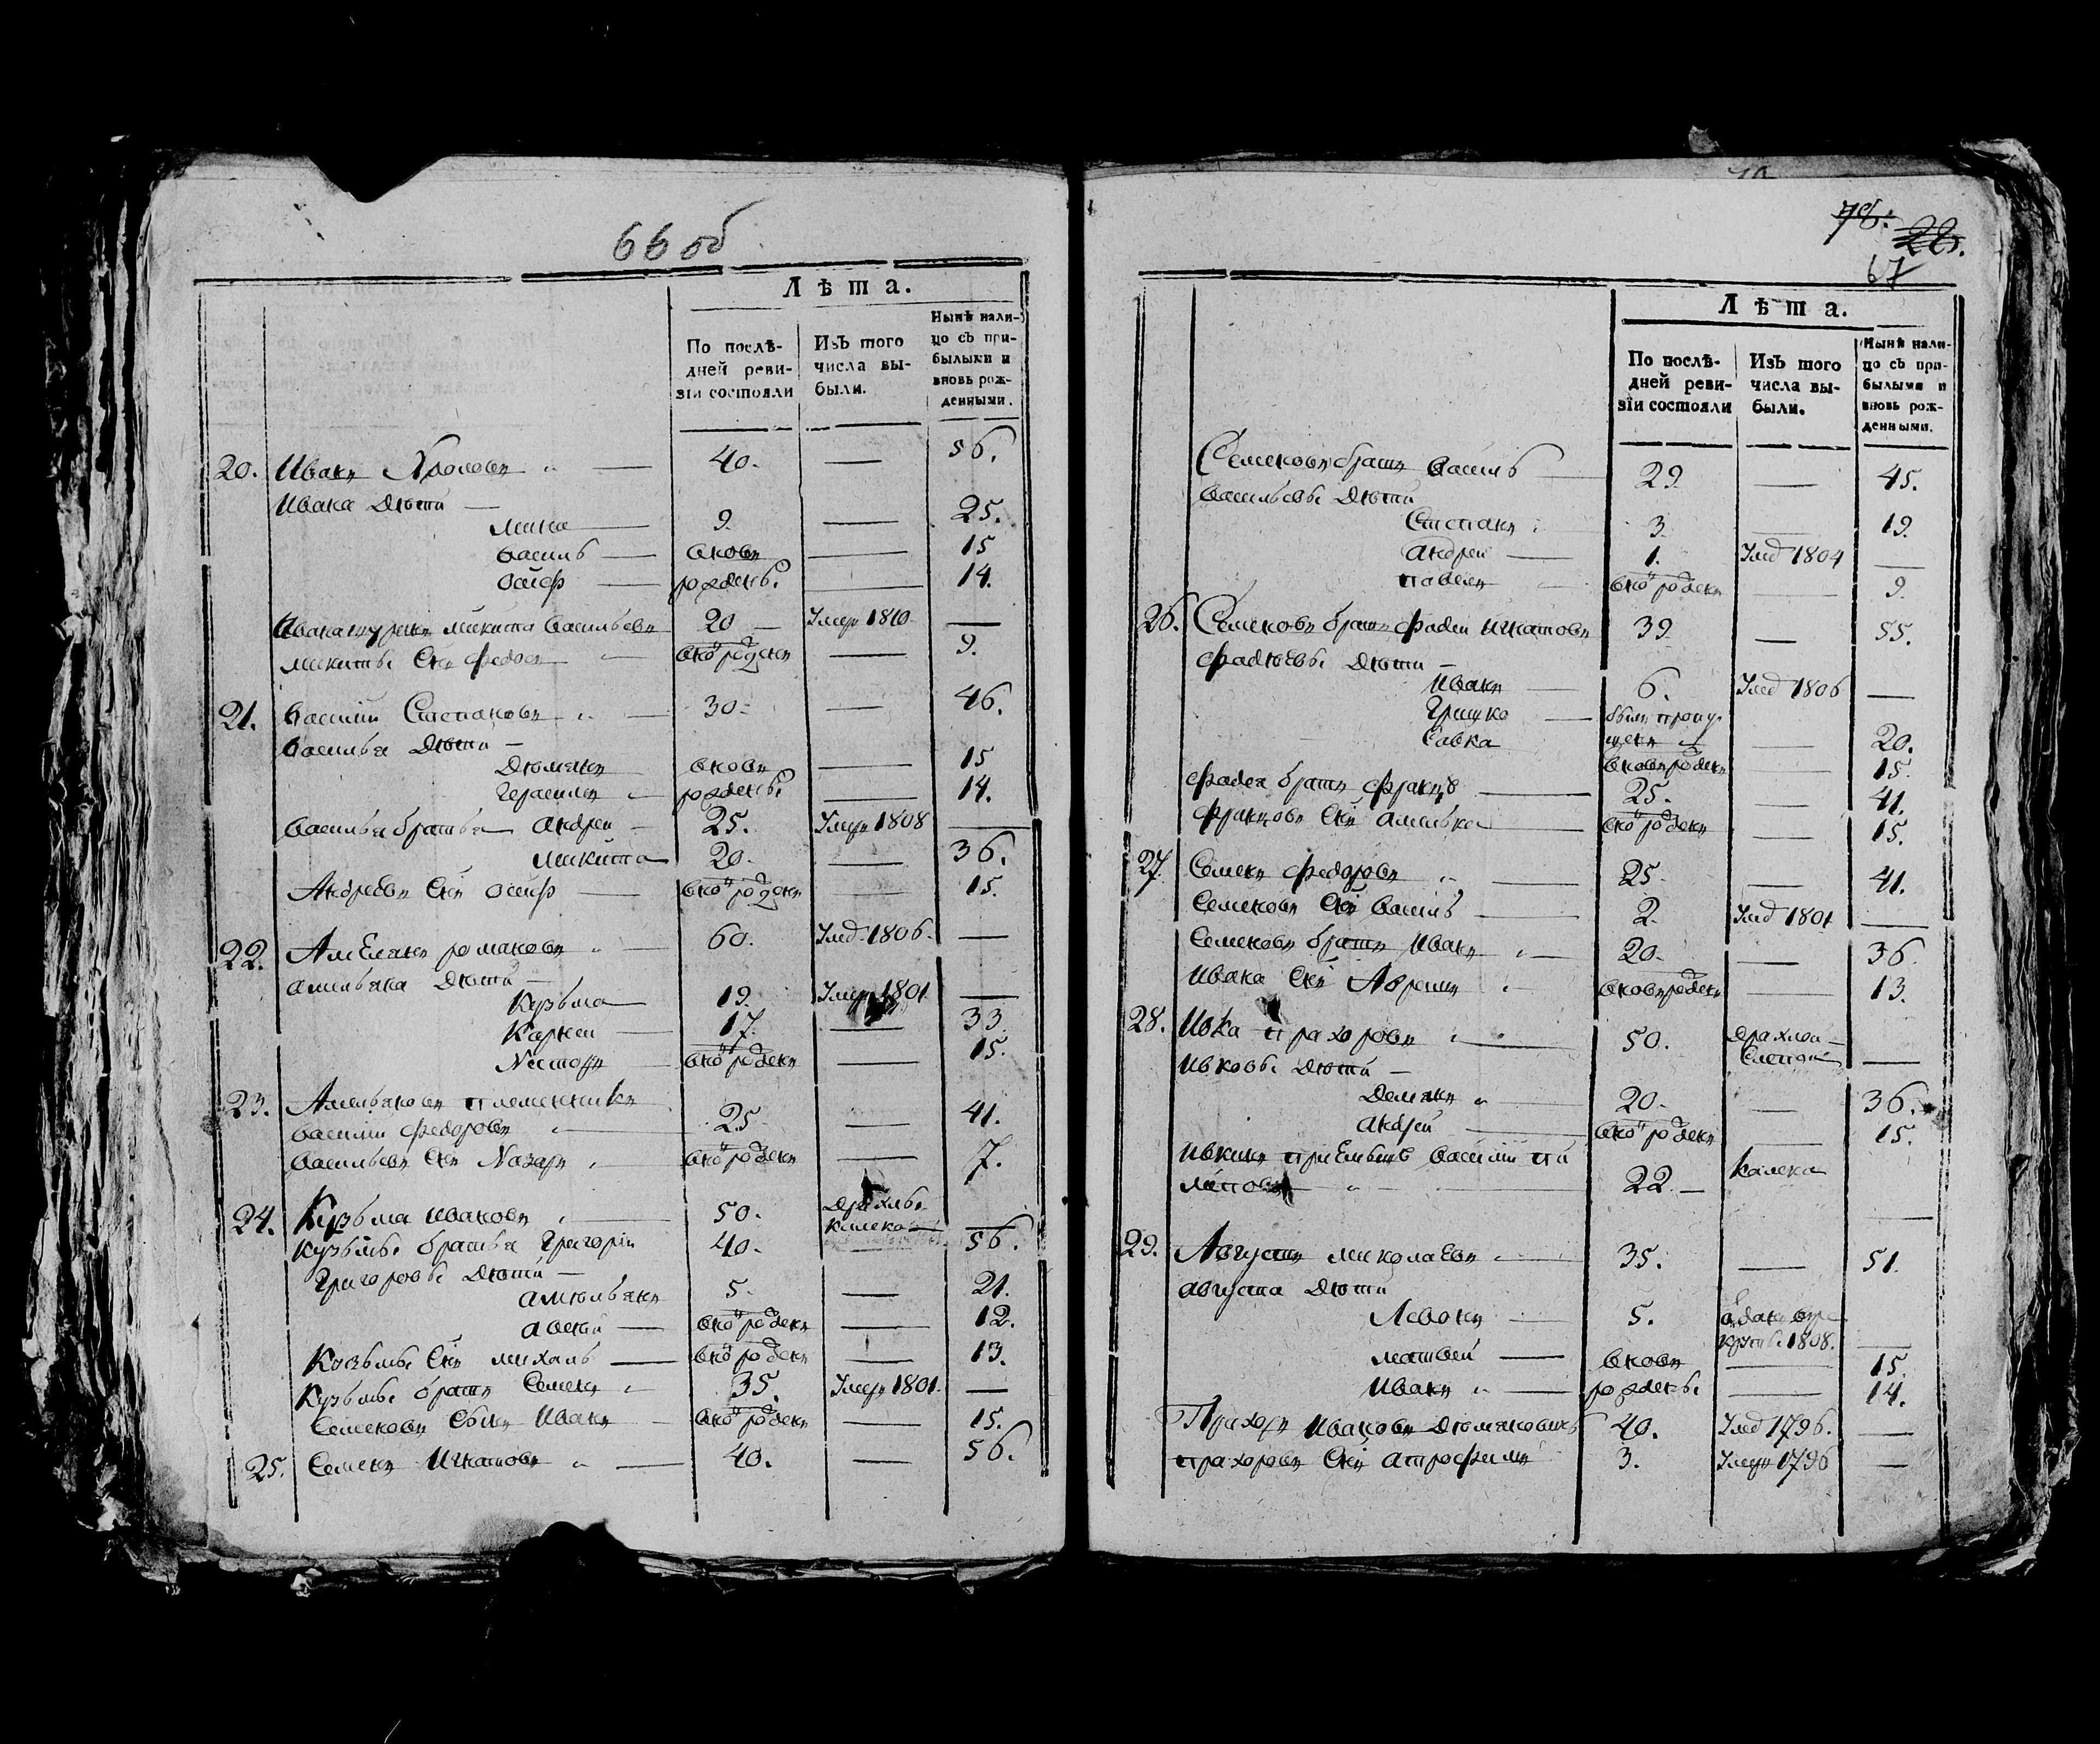 66 об
Лѣта.
По послѣ-
дней реви-
зіи состояли
Изъ того
числа вы-
были.
Нынѣ нали-
цо съ при-
былыми и
вновь рож-
денными.
20. Иванъ 40. — 56.
Ивана Дѣти —
Мина — 9. — 25.
Василь — вновь — 15
Осиф — рожденны — 14.
Ивана Микита Васильевъ 20 — Умеръ 1810. —
Микиты Снъ Федоръ внōрōденъ — 9.
21. Василий Степановъ 30. — 46.
Василья Дѣти —
Демянъ вновь — 15
Герасимъ рожденны — 14.
Василья братья Андрей — 25. Умеръ 1808 —
Микита 20. — 36.
Андреевъ Снъ Осифъ — внōрōденъ — 15.
22. Амельянъ Романовъ 60. Умер. 1806. —
Амельяна Дѣти —
Кузьма — 19. Умеръ 1801 —
Карней — 17. — 33
Нестеръ — внōрōденъ — 15.
23. Амельяновъ племенникъ
Василий Федоровъ 25 — 41.
Васильевъ Снъ Назаръ внōрōденъ — 7.
24. Кузьма Ивановъ 50. Дряхлы
калека —
Кузьмы братья Григорій 40. — 56.
Григоровы Дѣти —
Амельянъ 5. — 21.
Авсей — внōрōденъ — 12.
Кузьмы Снъ Михаль — внōрōденъ — 13.
Кузьмы братъ Семенъ 35. Умеръ 1801. —
Семеновъ Сынъ Иванъ внōрōденъ — 15.
25. Семенъ Игнатовъ — 40. — 56.
78.
28.
67
Лѣта.
По послѣ-
дней реви-
зіи состояли
Изъ того
числа вы-
были.
Нынѣ нали-
цо съ при-
былыми и
вновь рож-
денными.
Семеновъ братъ Василь 29. — 45.
Васильевы Дѣти
Степанъ 3. — 19.
Андрей — 1. Умер 1804 —
Павелъ внōрōденъ — 9.
26. Семеновъ братъ Фадей Игнатовъ 39. — 55.
Фадѣевы Дѣти —
Иванъ — 6. Умер 1806 —
Гришко — былъ пропу-
Савка щенъ — 20.
вновьрōденъ — 15.
Фадея братъ Францъ — 25. — 41.
Францовъ Снъ Амелька — внōрōденъ — 15.
27. Семенъ Федоровъ — 25. — 41.
Семеновъ Снъ Василь — 2. Умер 1801 —
Семеновъ братъ Иванъ — 20. — 36.
Ивана Снъ вновьрōденъ — 13.
28. Ивка Прахоровъ — 50. Драхлы
Слепой —
Ивковы Дѣти —
Демянъ — 20. — 36.
Андрей — внōрōденъ — 15.
Ивкинъ приемышъ Василий Фи
липовъ — 22. — калека
—
29. Августъ Миколаевъ 35. — 51.
Августа Дѣти
Левонъ 5. вданъ вре
круты 1808. —
Матвей — вновь — 15.
Иванъ — рожденны — 14.
Прахоръ Ивановъ Демяновичъ 40. Умер 1796. —
Прахоровъ Снъ 3. Умеръ 1796 —